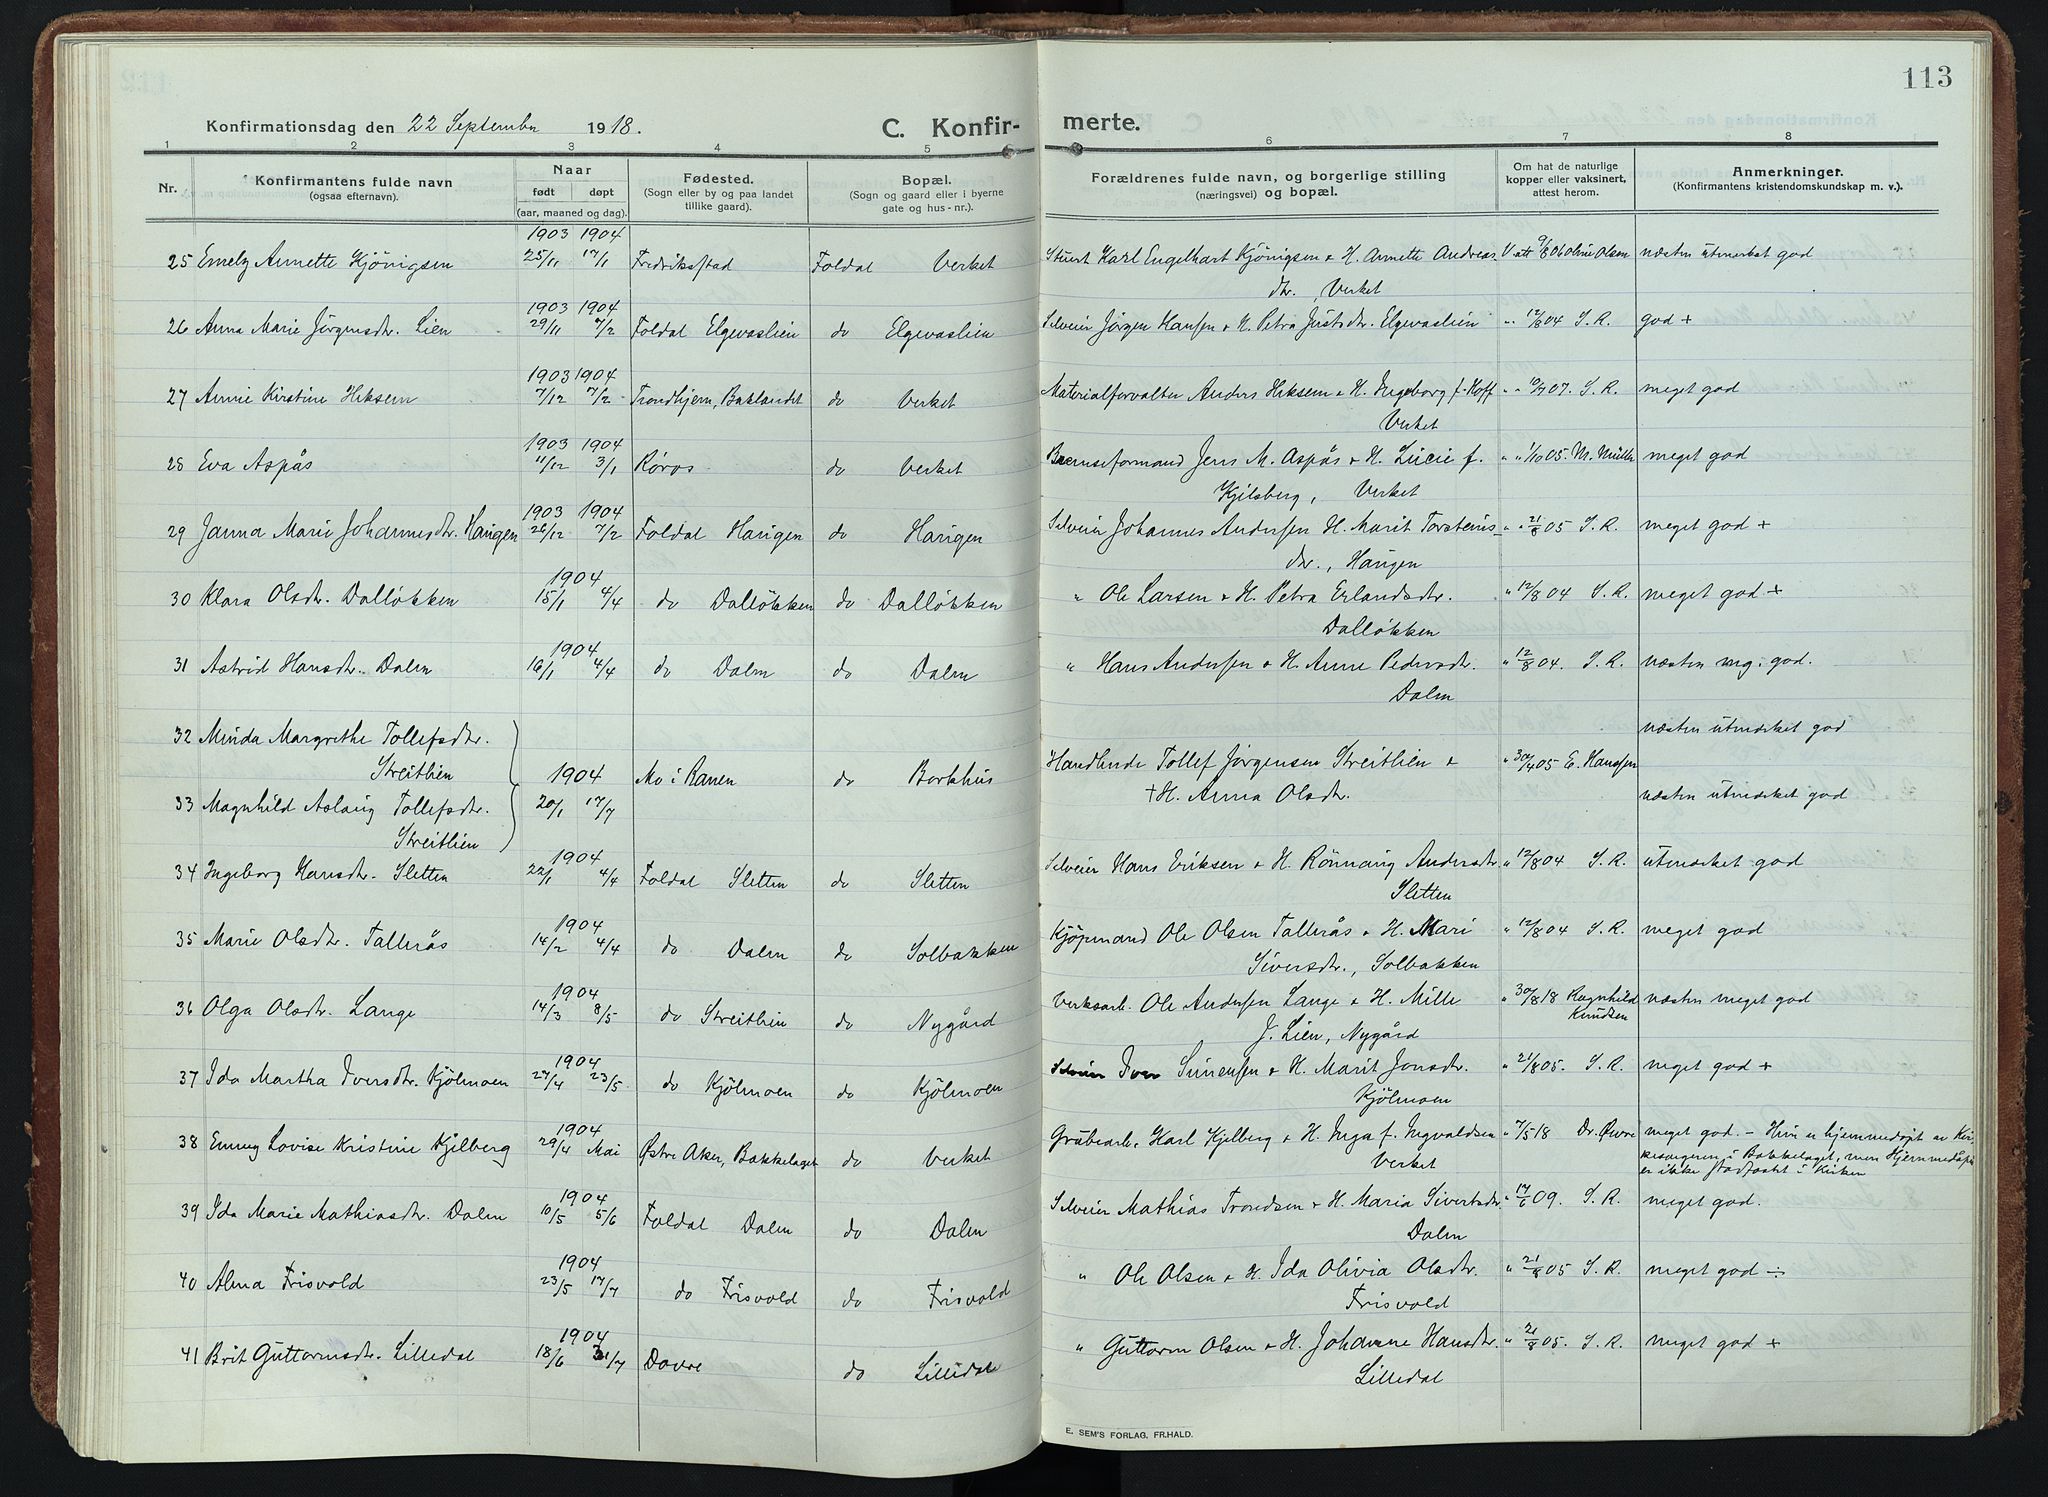 113
Konfirmationsdag den 22 September 1918.
C. Konfir- merte.
1 2 3 4 5 6 7 8
Nr. Konfirmantens fulde navn (ogsaa efternavn). Naar født døpt (aar, maaned og dag). Fødested. (Sogn eller by og paa landet tillike gaard). Bopæl. (Sogn og gaard eller i byerne gate og hus-nr.). Forældrenes fulde navn, og borgerlige stilling (næringsvei) og bopæl. Om hat de naturlige kopper eller vaksinert, attest herom. Anmerkninger. (Konfirmantens kristendomskundskap m. v.).
1903 1904
25 Emely Annette Kjönigsen 25/11 17/1 Fredriksstad Foldal Verket Stuert Karl Engelhart Kjönigsen & H. Annette Andreas V. att 9/8 06 Oline Olsen næsten utmerket god
dtr., Verket
1903 1904
26 Anna Marie Jörgensdtr. Lien 29/11 7/2 Foldal Elgevaslien do Elgevaslien Selveier Jörgen Hansen & H. Petra Justsdtr. Elgevaslien " 12/8 04 S. R. god +
1903 1904
27 Annie Kirstine Hiksem 7/12 7/2 Trondhjem, Baklandet do Verket Materialforvalter Anders Hiksem & H. Ingeborg f. Hoff " 10/7 07. S. R. meget god
Verket
1903 1904
28 Eva Aspås 11/12 3/1 Røros do Verket Bremseformand Jens M. Aspås & H. Lucie f. " 1/10 05. M. Müller meget god
Kjelsberg, Verket
1903 1904
29 Janna Marie Johannesdtr. Haugen 26/12 7/2 Foldal Haugen do Haugen Selveier Johannes Andersen H. Marit Torsteins- " 21/8 05 S. R. meget god +
dtr., Haugen
1904
30 Klara Olsdtr. Dalløkken 15/1 4/4 do Dalløkken do Dalløkken " Ole Larsen & H. Petra Erlandsdtr. " 12/8 04 S. R. meget god +
Dalløkken
1904
31 Astrid Hansdtr. Dalen 16/1 4/4 do Dalen do Dalen " Hans Andersen & H. Anne Pedersdtr. " 12/8 04. S. R. næsten mg. god.
Dalen
32 Minda Margrethe Tollefsdtr. næsten utmerket god
Streitlien 1904 Mo i Ranen do Borkhus Handlende Tollef Jørgensen Streitlien & " 30/4 05 E. Hanssen
33 Magnhild Aslaug Tollefsdtr. 20/1 17/7 + H. Anna Olsdtr. næsten utmerket god
Streitlien
1904
34 Ingeborg Hansdtr. Sletten 22/1 4/4 Foldal Sletten do Sletten Selveier Hans Eriksen & H. Rönnaug Andersdtr " 12/8 04 S. R. utmerket god
Sletten
1904
35 Marie Olsdtr. Tallerås 14/2 4/4 do Dalen do Solbakken Kjöpmand Ole Olsen Tallerås & H. Mari " 12/8 04 S. R. meget god
Siversdtr., Solbakken
1904
36 Olga Olsdtr. Lange 14/3 8/5 do Streitlien do Nygård Verksarb. Ole Andersen Lange & H. Mille " 30/8 18 Ragnhild Knudsen næsten meget god
J. Lien, Nygård
1904
37 Ida Martha Iversdtr. Kjölmoen 27/4 23/5 do Kjölmoen do Kjölmoen Selveier Iver Simensen & H. Marit Jonsdtr. " 21/8 05. S. R. meget god +
Kjölmoen
1904
38 Emmy Lovise Kristine Kjelberg 29/4 Mai Østre Aker, Bækkelaget do Verket Grubearb. Karl Kjelberg & H. Inga f. Ingvaldsen " 7/5 18 Dr. Øwre meget god. - Hun er hjemmedøpt av Kir-
Verket kesangeren i Bækkelaget, men Hjemmedåpen
er ikke stadfæstet i Kirken
1904
39 Ida Marie Mathiasdtr. Dalen 10/5 5/6 Foldal Dalen do Dalen Selveier Mathias Trondsen & H. Maria Sivertsdtr. " 17/6 09. S. R. meget god.
Dalen
1904
40 Alma Frisvold 23/5 17/7 do Frisvold do Frisvold " Ole Olsen & H. Ida Olivia Olsdtr. " 21/8 05 S. R. meget god ÷
Frisvold
1904
41 Brit Guttormsdtr. Lilledal 18/6 31/7 Dovre do Lilledal " Guttorm Olsen & H. Johanne Hansdtr. " 21/8 05. S. R. meget god +
Lilledal
E. SEM'S FORLAG, FR.HALD.